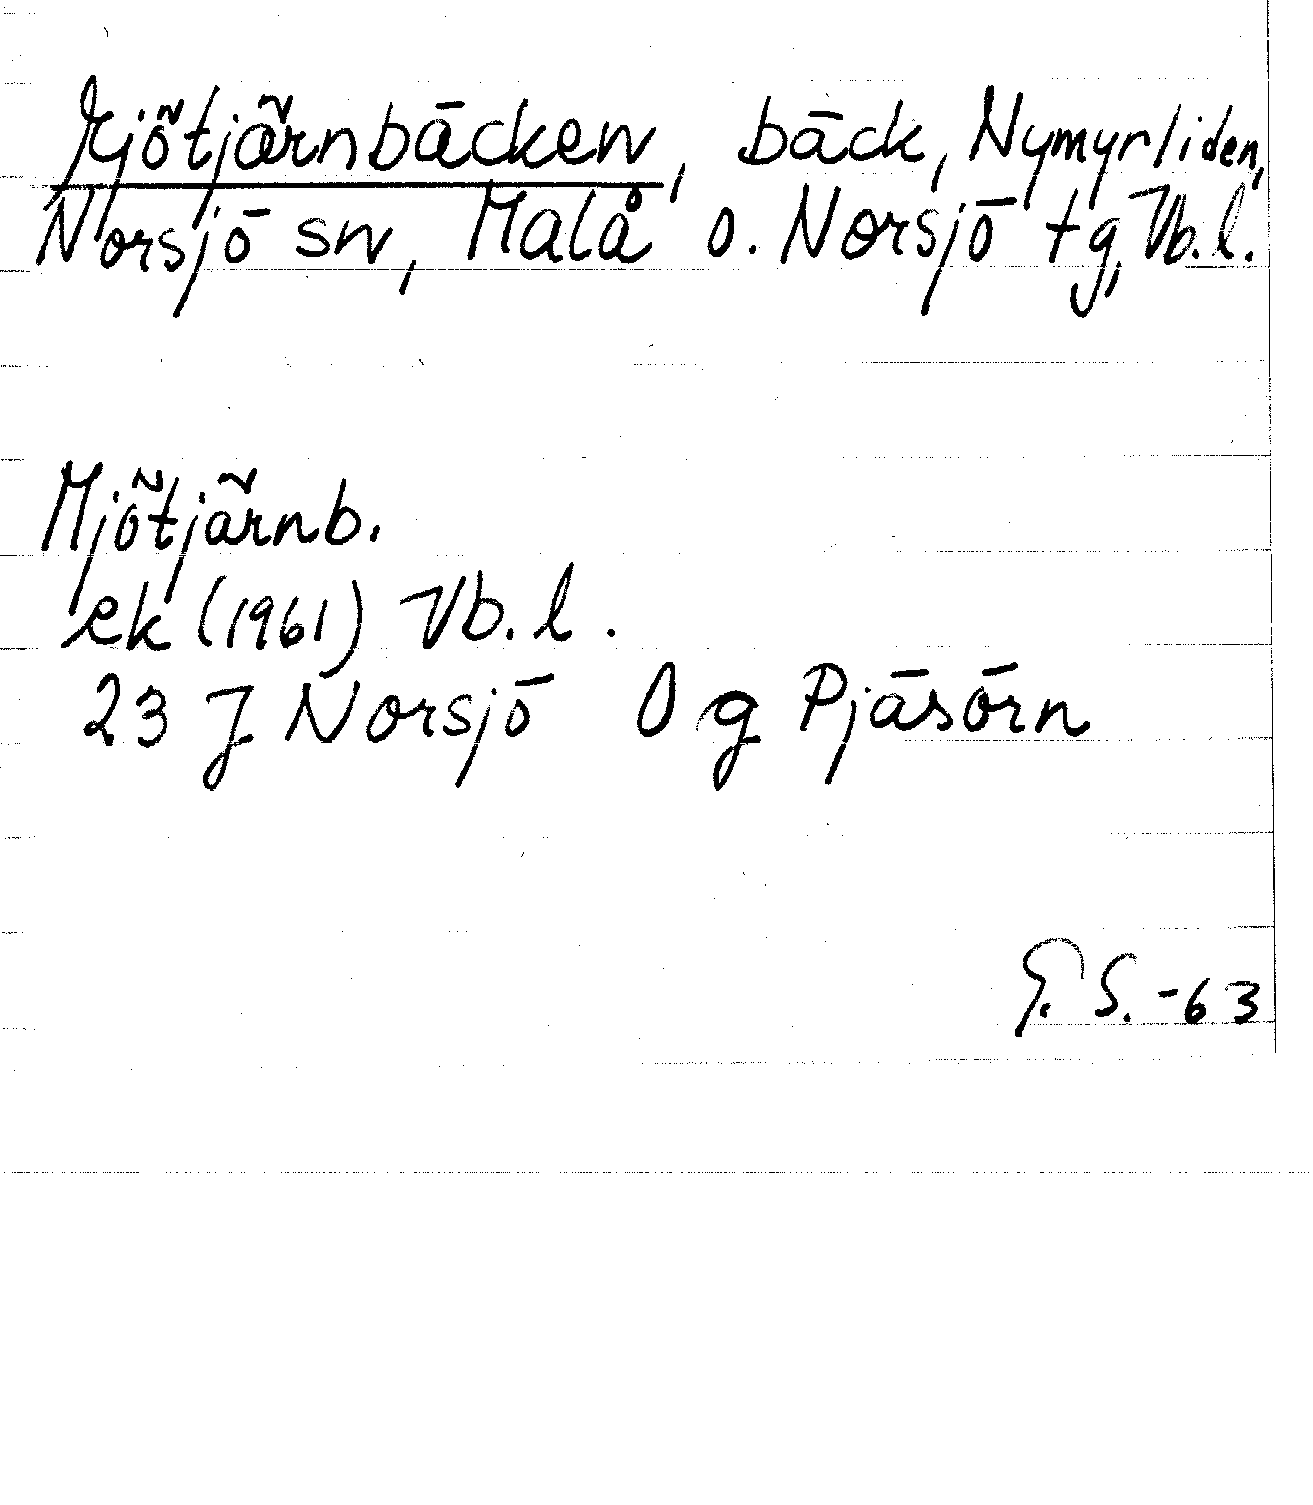 Mjötjärnbäcken, bäck, Nymyrliden,
Norsjö sn, Malå o. Norsjö tg, Vb.l.
Mjötjärnb.
ek (1961) Vb. l.
23 J Norsjö O g Pjäsörn
G. S. -63